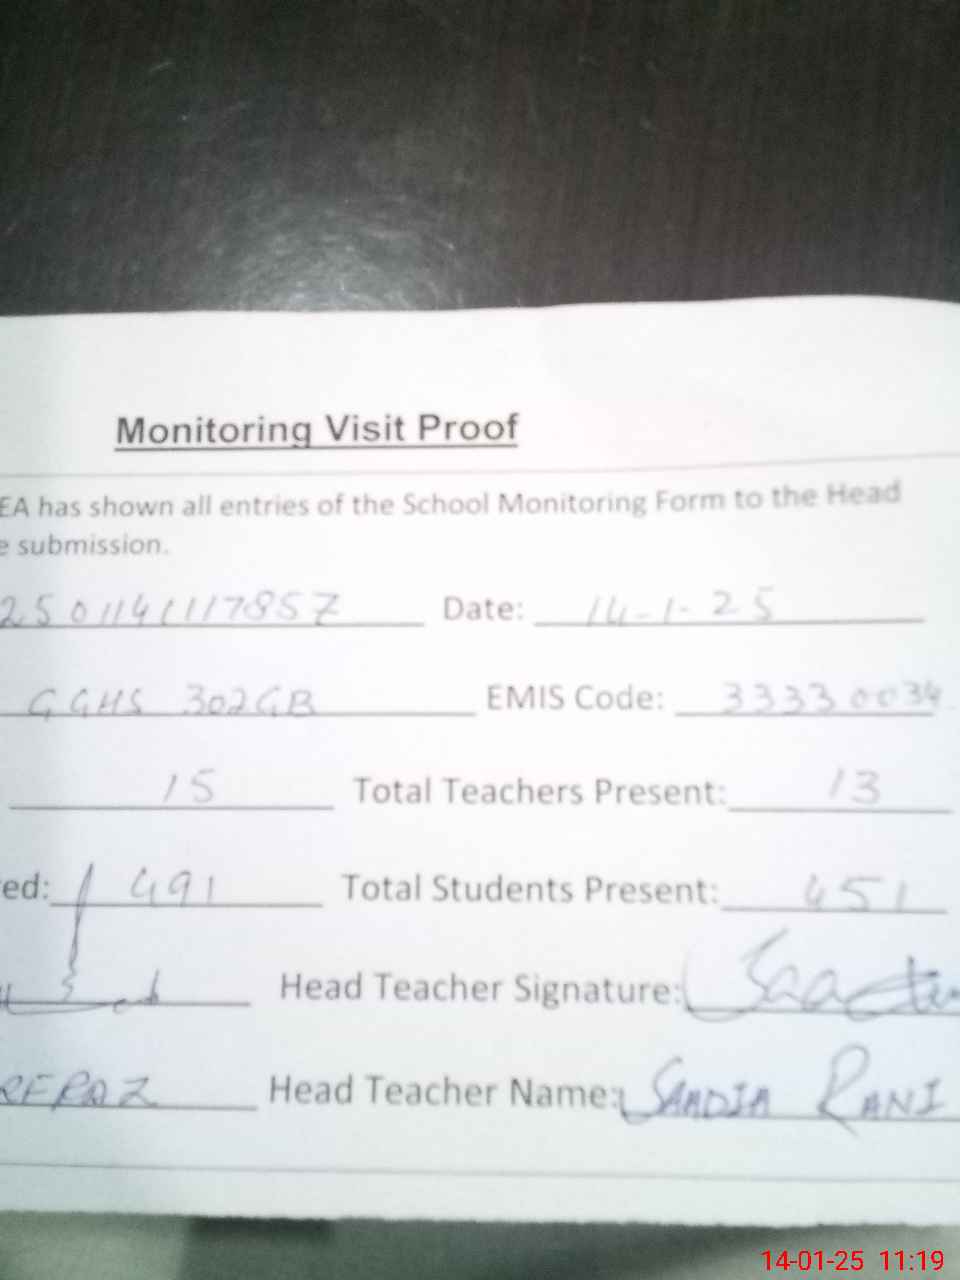 Monitoring Visit Proof
EA has shown all entries of the School Monitoring Form to the Head
e submission.
2501141117857 Date: 14-1-25
GGHS 302GB EMIS Code: 33330034
15 Total Teachers Present: 13
ed: 491 Total Students Present: 451
Head Teacher Signature:
Head Teacher Name: SAADIA RANI
14-01-25 11:19